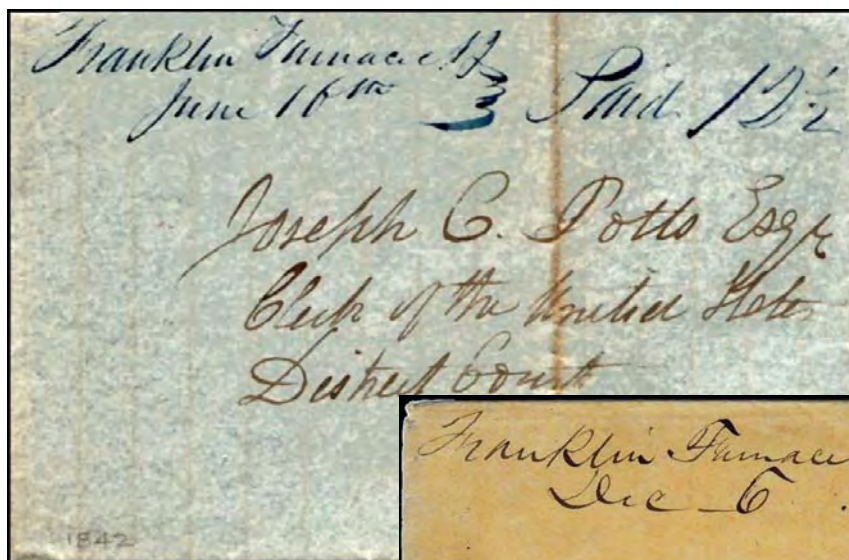 Franklin Furnace NJ
June 16th
Paid 12½
Joseph C. Potts Esqr
Clerk of the United States
District Court
1842
Franklin Furnace
Dec 6